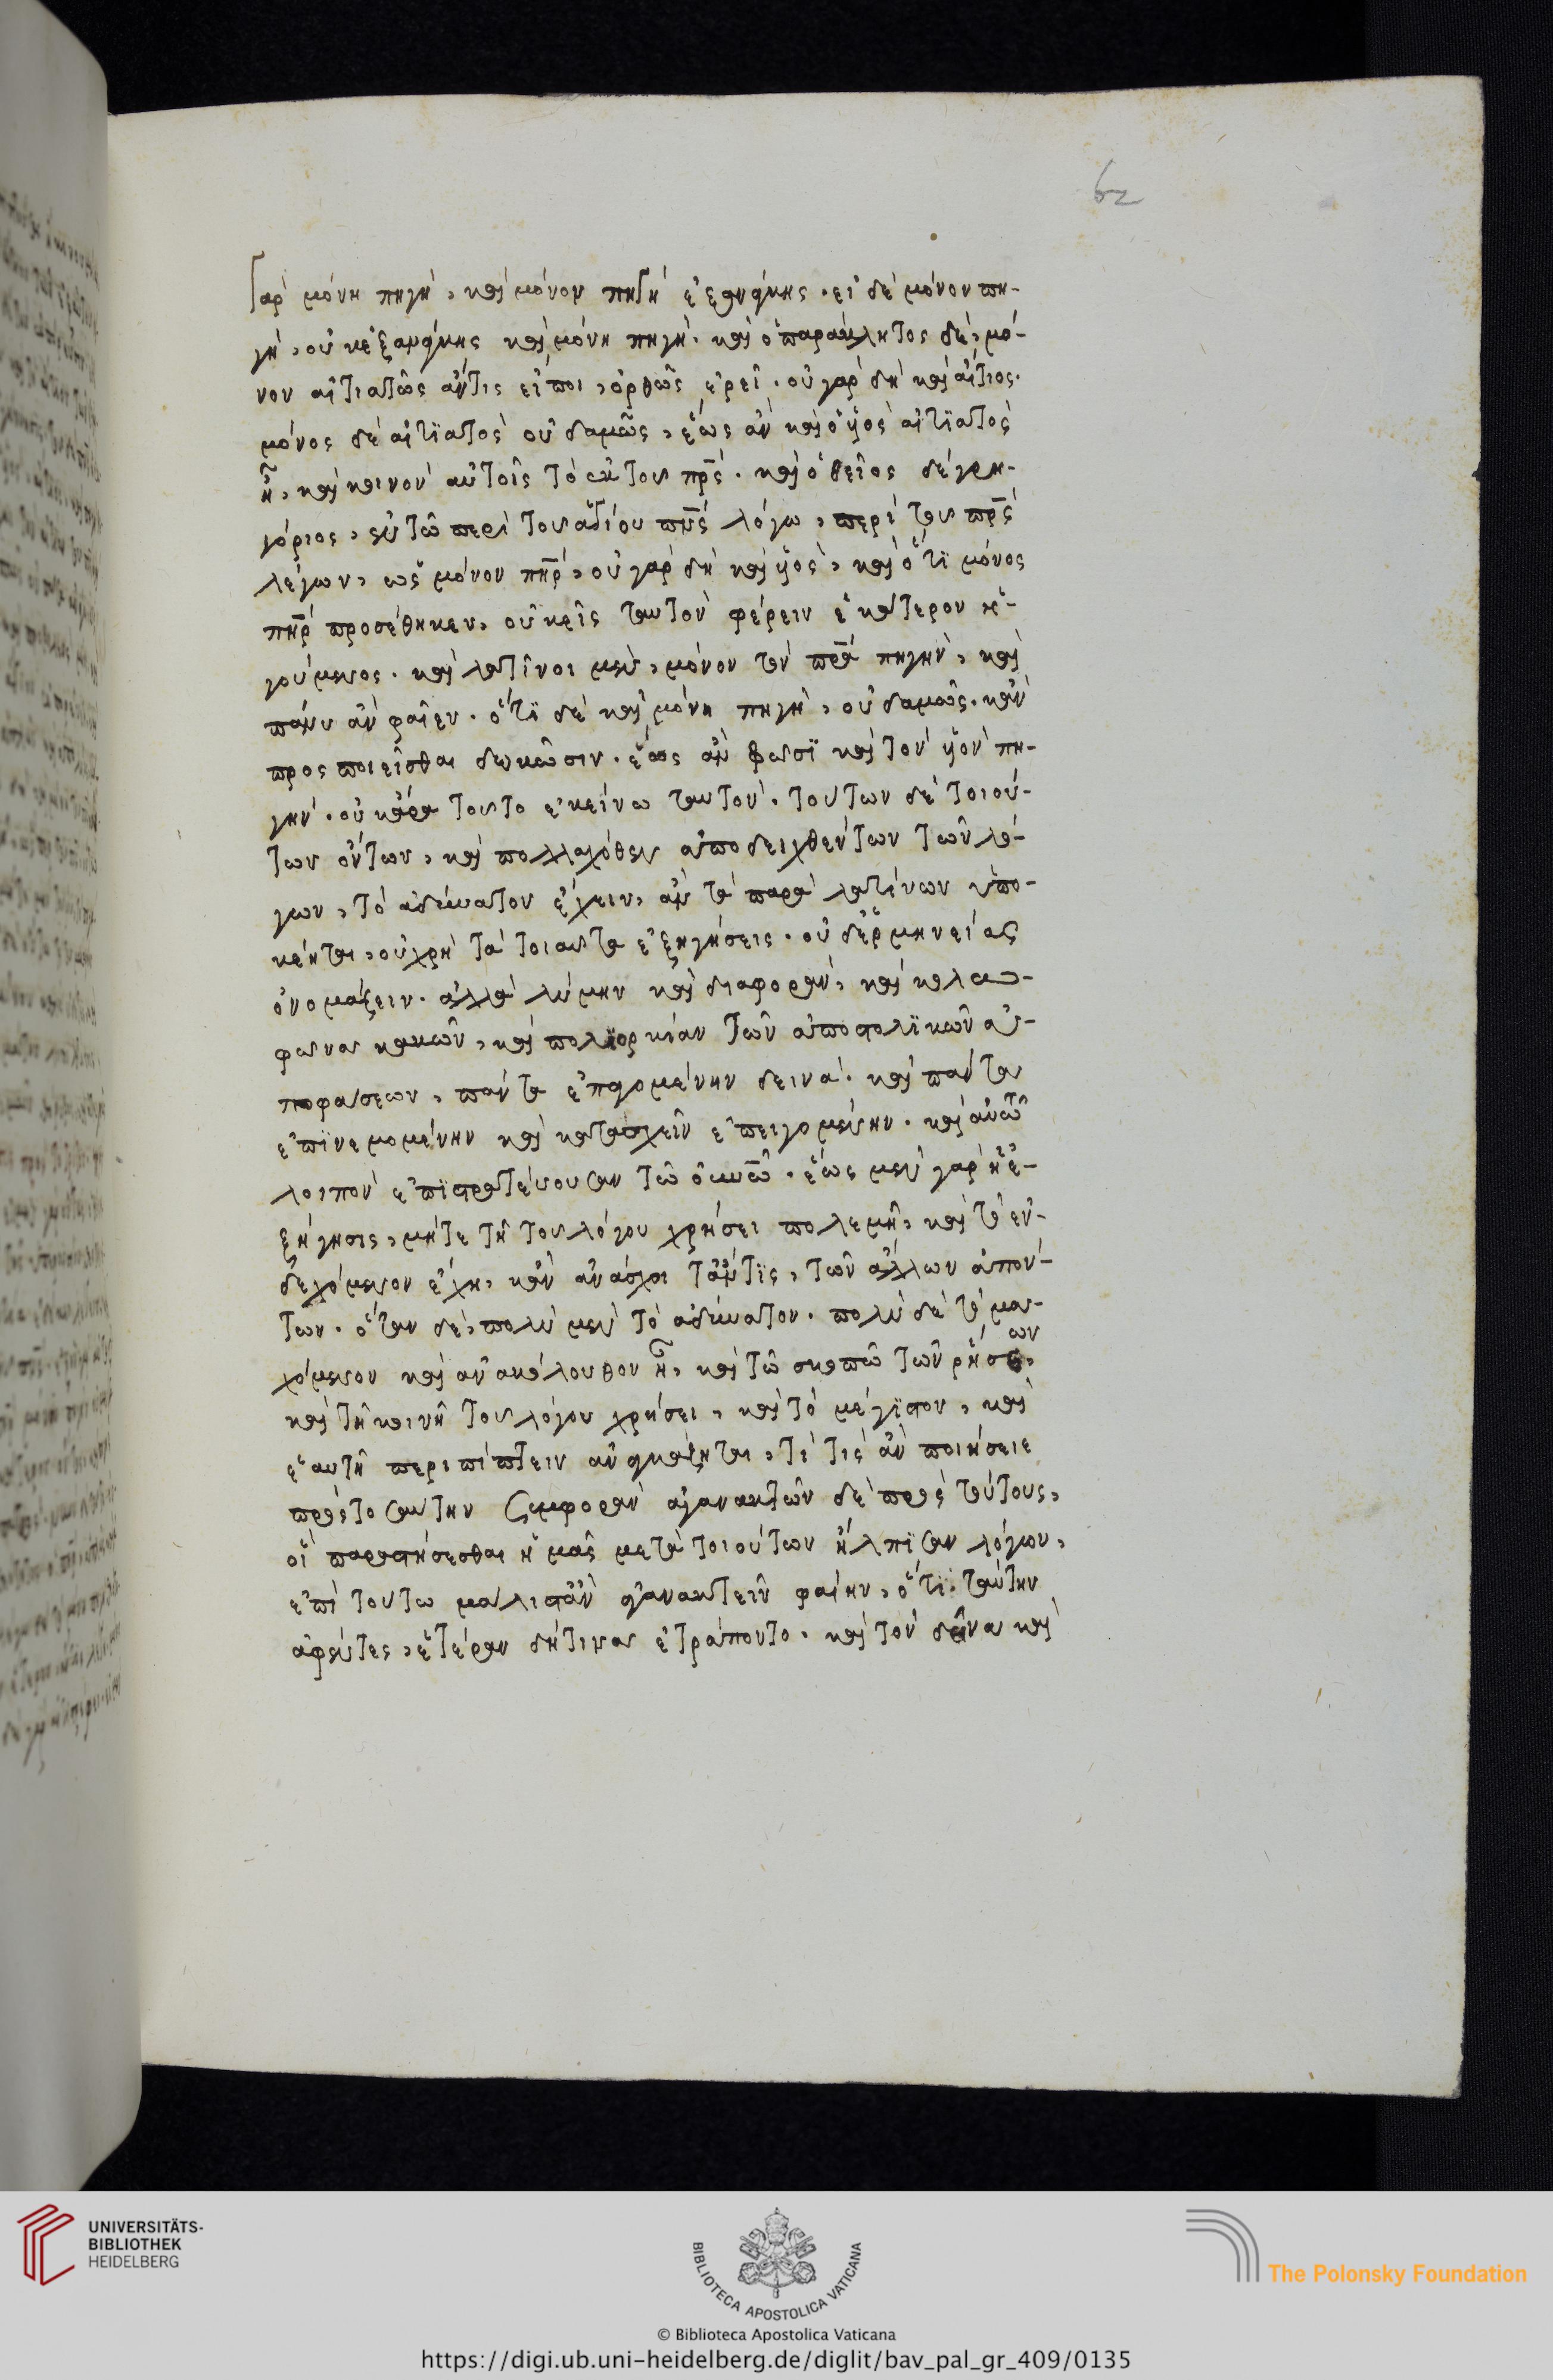 62
γὰρ μόνη πηγὴ, καὶ μόνον πηγὴ ἐξανάγκης. εἰ δὲ μόνον πη-
γὴ, οὐκ ἐξανάγκης καὶ μόνη πηγή. καὶ ὁ παράκλητος δὲ, μό-
νον αἰτιατῶς ἄντις εἴποι, ὀρθῶς ἐρεῖ. οὐ γὰρ δὴ καὶ αἴτιος.
μόνος δὲ αἰτϊατὸς οὐδαμῶς, ἕως ἂν καὶ ὁ ϋἱὸς αἰτϊατὸς
ἦ, καὶ κοινὸν αὐτοῖς τὸ ἐκ τοῦ πρ̅ς. καὶ ὁ θεῖος δὲ γρη-
γόριος, ἐν τῶ περὶ τοῦ ἁγίου πν̅ς λόγω, περὶ τοῦ πρ̅ς
λέγων, ὡς μόνον πη̅ρ, οὐ γὰρ δὴ καὶ ϋἱὸς, καὶ ὅτϊ μόνος
πη̅ρ προσέθηκεν, οὐκ εἰς ταυτὸν φέρειν ἑκάτερον ἡ-
γούμενος. καὶ λατῖνοι μὲν, μόνον τὸν πρ̅α πηγὴν, καὶ
πάνυ ἂν φαῖεν. ὅτϊ δὲ καὶ μόνη πηγὴ, οὐδαμῶς. κἂν
προσποιεῖσθαι δοκῶσιν. ἕως ἂν φωσϊ καὶ τὸν ϋἱὸν πη-
γήν. οὐκ ἄρα τοῦτο ἐκείνω ταυτόν. τούτων δὲ τοιού-
των ὄντων, καὶ πολλαχόθεν ἀποδειχθέντων τῶν λό-
γων, τὸ ἀδύνατον ἔχειν, ἂν τὰ παρὰ λατίνων ὑπο-
κέηται, οὐ χρὴ τὰ τοιαῦτα ἐξηγήσεις. οὐδ' ἑρμηνείας
ὀνομάζειν. ἀλλὰ λύμην καὶ διαφορὰν, καὶ
κακῶν, καὶ πολϊορκίαν τῶν ἀποστολϊκῶν ἀ-
ποφάσεων, πάντα ἐπαγομένην δεινὰ. καὶ πάντα
ἐπϊνεμομένην καὶ κατασχεῖν ἐπειγομένην. καὶ
λοιπὸν ἐπϊστρατεύουσαν τῶ. ἕως μὲν γὰρ ἡ ἐ-
ξήγησις, μήτε τῆ τοῦ λόγου χρήσει πολεμῆ, καὶ τὸ ἐν-
δεχόμενον ἔχη, κἂν ἀνάσχοι τἄντϊς, τῶν ἄλλων ἀπόν-
των. ὅταν δὲ, πολὺ μὲν τὸ ἀδύνατον. πολὺ δὲ τὸ μα-
χόμενον καὶ ἀνακόλουθον ἦ, καὶ τῶ σκοπῶ τῶν ρήσεων,
καὶ τῆ κοινῆ τοῦ λόγου χρήσει, καὶ τὸ μέγϊστον, καὶ
ἑαυτῆ περιπίπτειν ἀναγκάζηται, τί τὶς ἂν ποιήσειε
πρὸς τοσαύτην ζυμφορὰν ἀγανακτῶν δὲ πρὸς τούτους,
οἳ παραστήσεσθαι ἡμᾶς μετὰ τοιούτων ἤλπϊσαν λόγων,
ἐπὶ τούτω μάλιστἂν ἀγανακτεῖν φαίην, ὅτϊ ταύτην
ἀφέντες, ἑτέραν δήτινα ἐτράποντο. καὶ τὸν δεῖνα καὶ
UNIVERSITÄTS-
BIBLIOTHEK
HEIDELBERG
BIBLIOTECA APOSTOLICA VATICANA
The Polonsky Foundation
© Biblioteca Apostolica Vaticana
https://digi.ub.uni-heidelberg.de/diglit/bav_pal_gr_409/0135